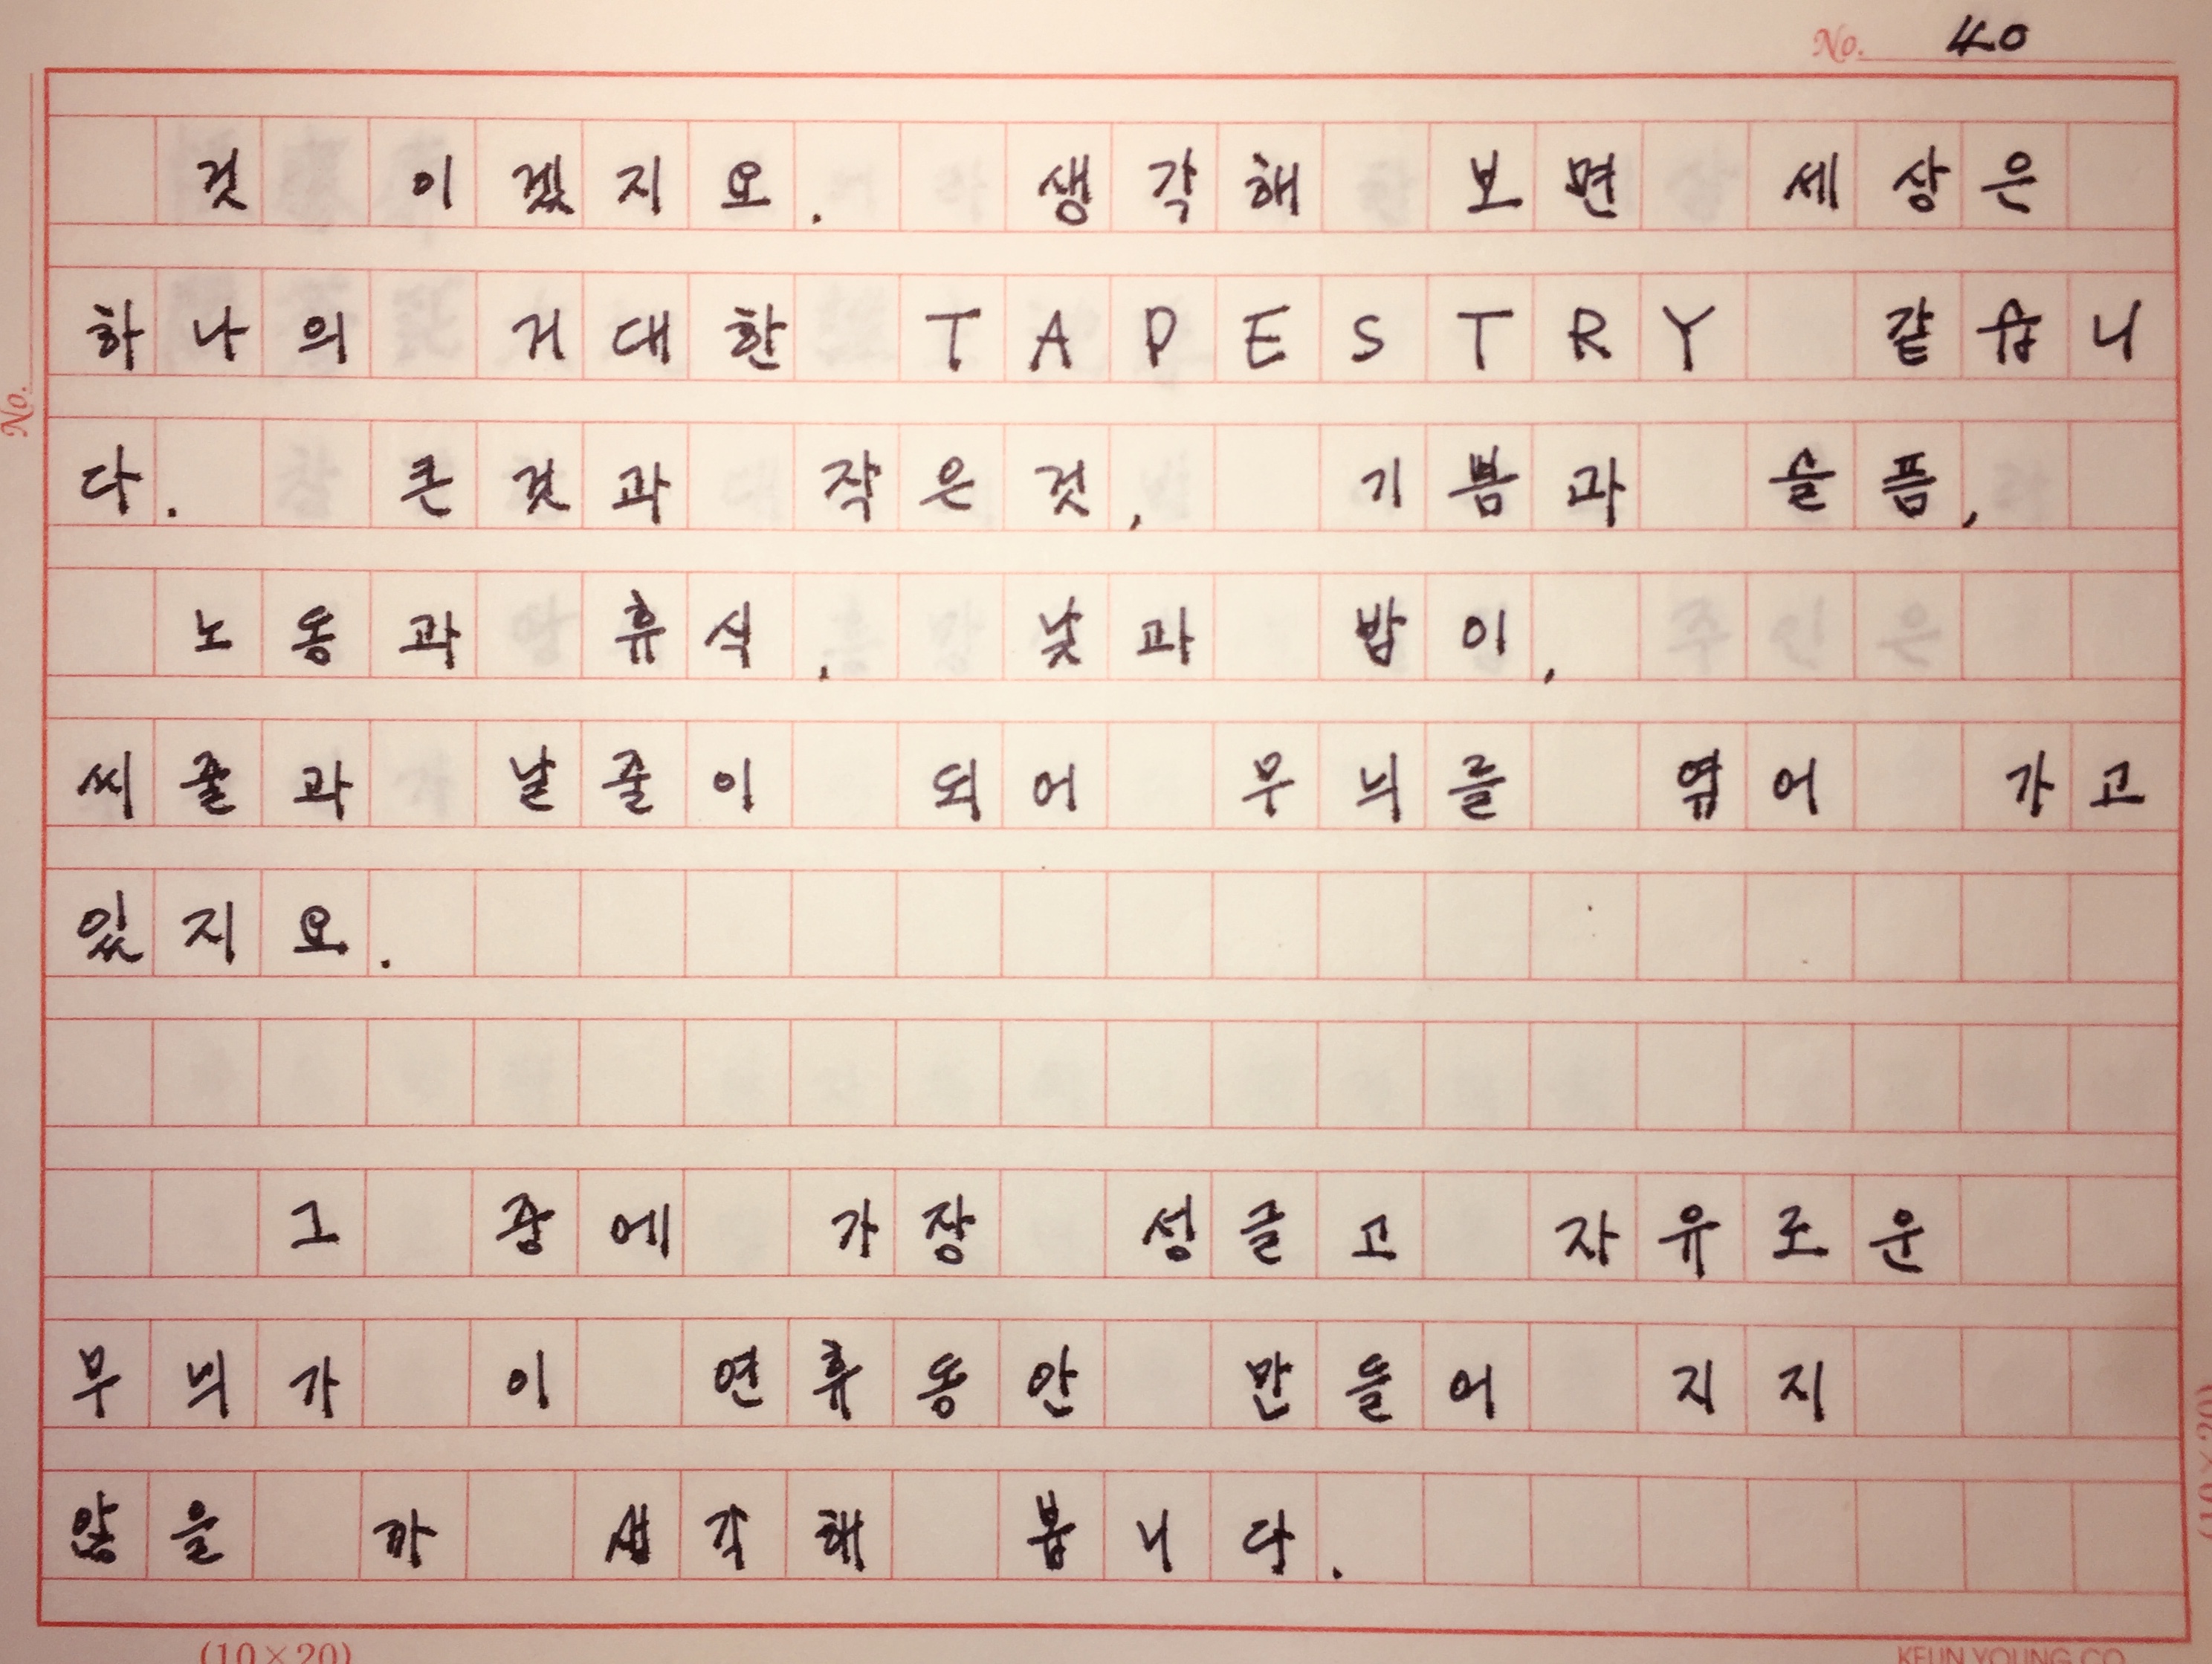 No. 40
것 이겠지요. 생각해 보면 세상은
하나의 거대한 TAPESTRY 같습니
다. 큰것과 작은것, 기쁨과 슬픔,
노동과 휴식, 낮과 밤이,
씨줄과 날줄이 되어 무늬를 엮어 가고
있지요.
그 중에 가장 성글고 자유로운
무늬가 이 연휴동안 만들어 지지
않을 까 생각해 봅니다.
No.
(10×20)
(10×20)
KEUN YOUNG CO.